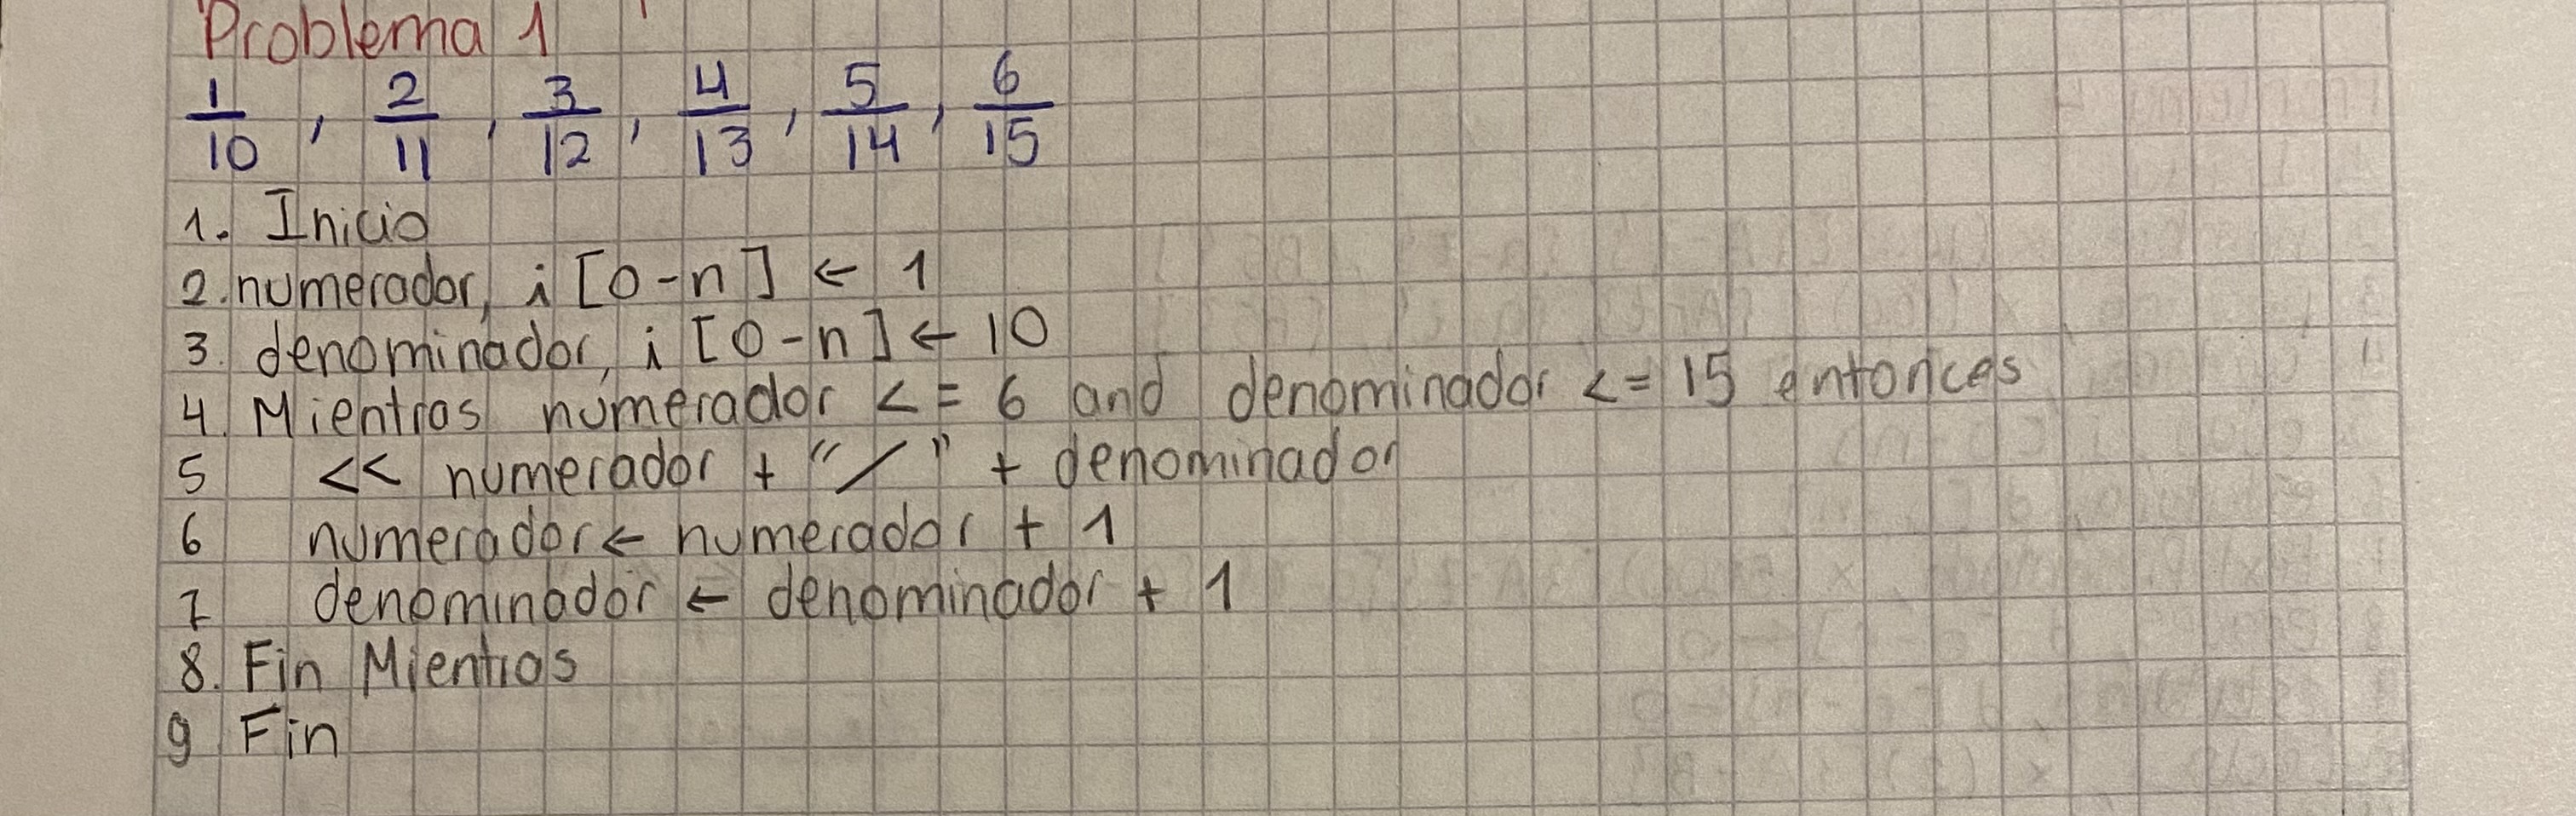 Problema 1
1/10 , 2/11 , 3/12 , 4/13 , 5/14 , 6/15
1. Inicio
2. numerador, i [0-n] ← 1
3. denominador, i [0-n] ← 10
4. Mientras numerador <= 6 and denominador <= 15 entonces
5 << numerador + "/" + denominador
6 numerador ← numerador + 1
7 denominador ← denominador + 1
8. Fin Mientras
9 Fin